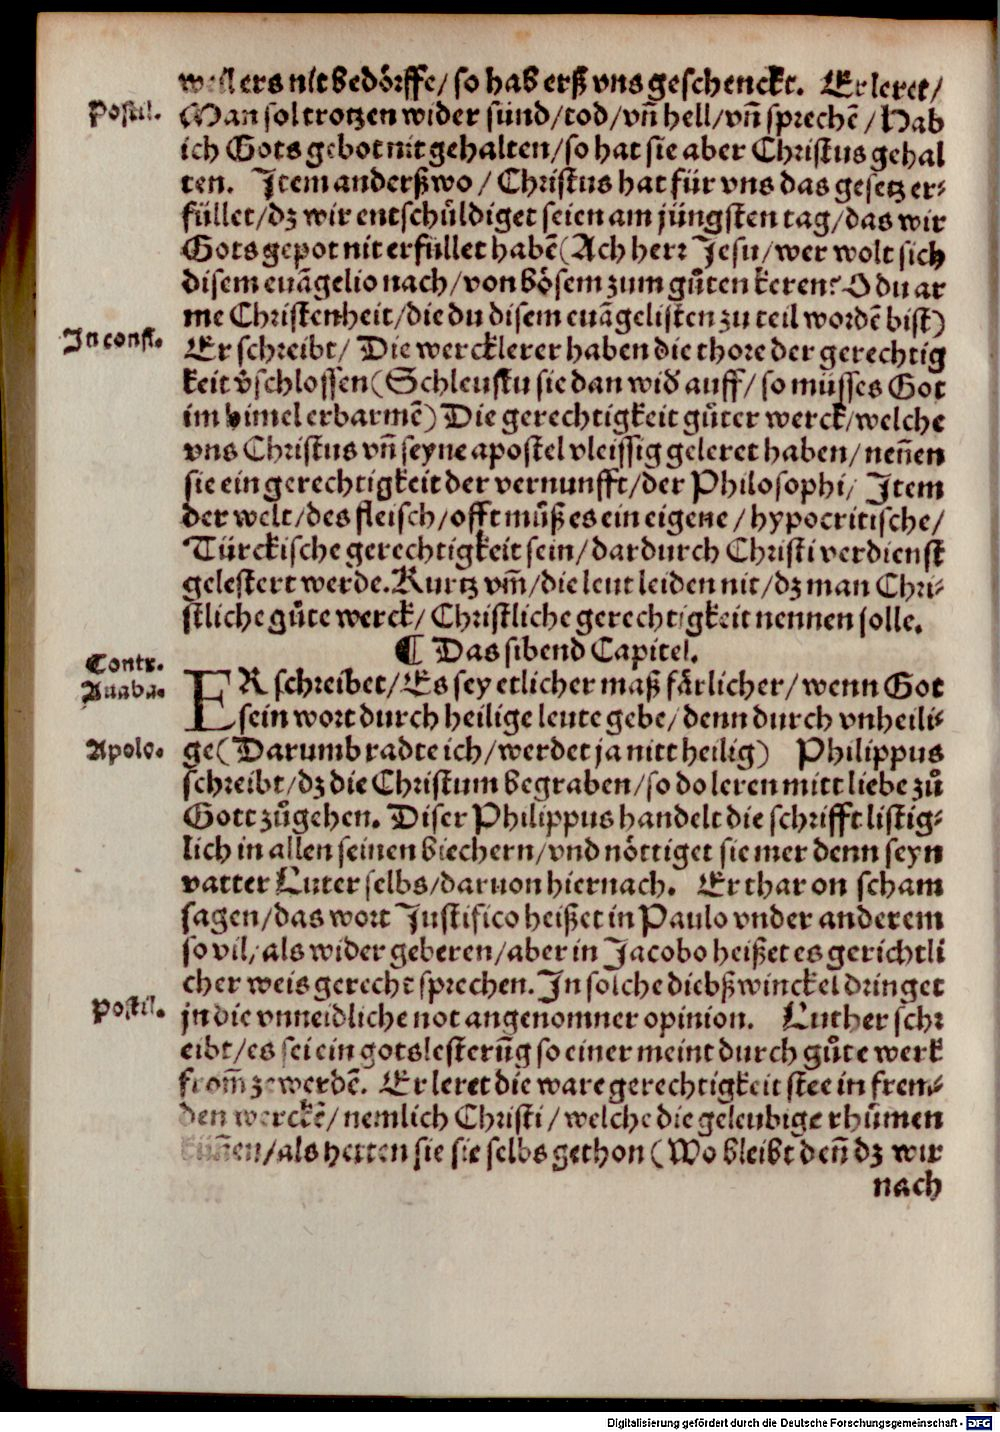 weil ers nit bedörffe/ so hab erß vns geschenckt. Er leret/
Postil.
Man sol trotzen wider sünd/ tod/ vn̄ hell/ vn̄ sprechē/ Hab
ich Gots gebot nit gehalten/ so hat sie aber Christus gehal
ten. Item anderßwo/ Christus hat für vns das gesetz er⸗
füllet/ dz wir entschüldiget seien am jüngsten tag/ das wir
Gots gepot nit erfüllet habē (Ach herr Jesu/ wer wolt sich
disem euāgelio nach/ von bösem zum gůten keren? O du ar
me Christenheit/ die du disem euāgelisten zu teil wordē bist)
In confl.
Er schreibt/ Die wercklerer haben die thore der gerechtig
keit v̊schlossen (Schleustu sie dan wid̕ auff/ so müsses Got
im himel erbarmē) Die gerechtigkeit gůter werck/ welche
vns Christus vn̄ seyne apostel vleissig geleret haben/ nen̄en
sie ein gerechtigkeit der vernunfft/ der Philosophi/ Item
der welt/ des fleisch/ offt můß es ein eigene/ hypocritische/
Türckische gerechtigkeit sein/ dardurch Christi verdienst
gelestert werde. Kurtz vm̄/ die leut leiden nit/ dz man Chri⸗
stliche gůte werck/ Christliche gerechtigkeit nennen solle.
¶ Das sibend Capitel.
Contr.
Anaba.
ER schreibet/ Es sey etlicher maß färlicher/ wenn Got
sein wort durch heilige leute gebe/ denn durch vnheili⸗
Apolo.
ge (Darumb radte ich/ werdet ja nitt heilig) Philippus
schreibt/ dz die Christum begraben/ so do leren mitt liebe zů
Gott zůgehen. Diser Philippus handelt die schrifft listig⸗
lich in allen seinen biechern/ vnd nöttiget sie mer denn seyn
vatter Luter selbs/ daruon hiernach. Er thar on scham
sagen/ das wort Justifico heißet in Paulo vnder anderem
so vil/ als wider geberen/ aber in Jacobo heißet es gerichtli
cher weis gerecht sprechen. In solche diebßwinckel dringet
Postil.
jn die vnneidliche not angenomner opinion. Luther schr
eibt/ es sei ein gotslesterūg so einer meint durch gůte werk
from̄ zewerdē. Er leret die ware gerechtigkeit stee in frem⸗
den werckē/ nemlich Christi/ welche die geleubige rhůmen
kün̄en/ als hetten sie sie selbs gethon (Wo bleibt den̄ dz wir
nach
Digitalisierung gefördert durch die Deutsche Forschungsgemeinschaft - DFG